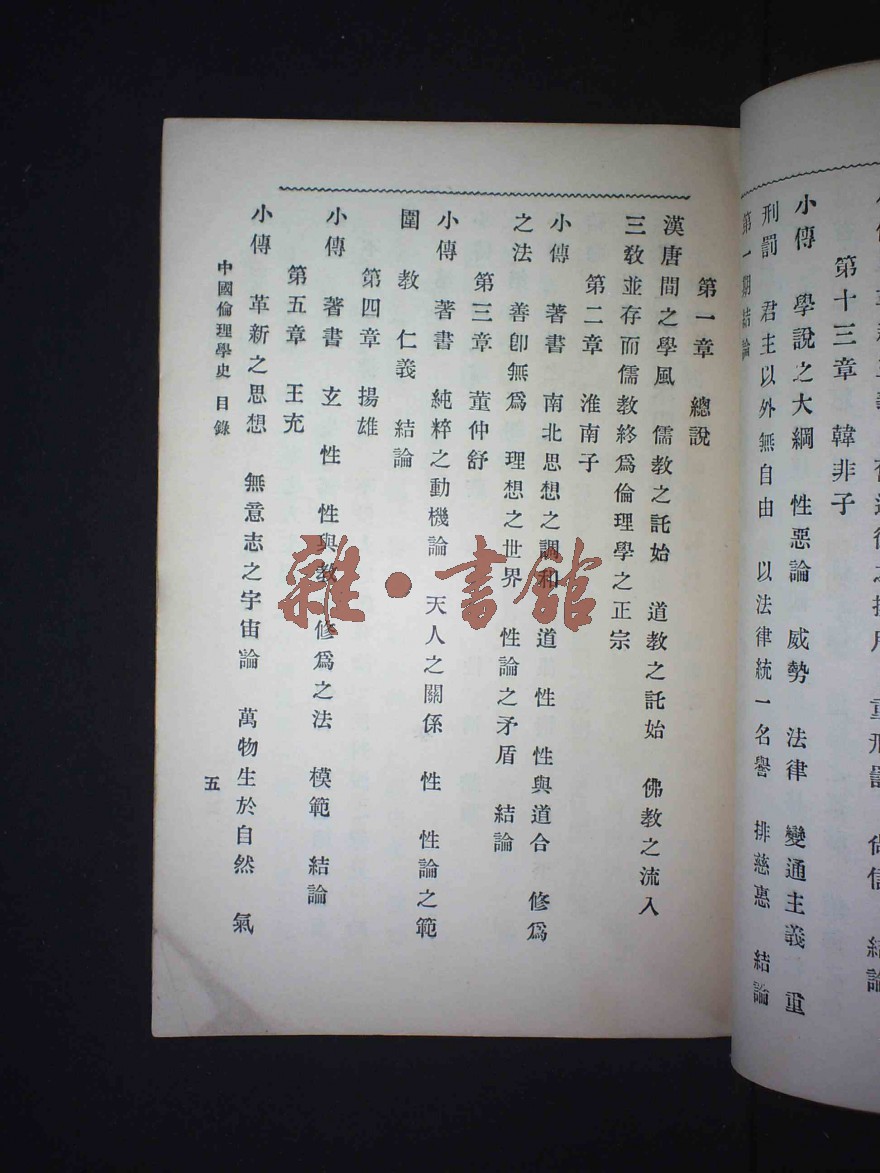 第十三章 韓非子
小傳 學說之大綱 性惡論 威勢 法律 變通主義 重
刑罰 君主以外無自由 以法律統一名譽 排慈惠 結論
第一期結論
第一章 總說
漢唐間之學風 儒教之託始 道教之託始 佛教之流入
三敎並存而儒教終爲倫理學之正宗
第二章 淮南子
小傳 著書 南北思想之調和 道 性 性與道合 修爲
之法 善卽無爲 理想之世界 性論之矛盾 結論
第三章 董仲舒
小傳 著書 純粹之動機論 天人之關係 性 性論之範
圍 教 仁義 結論
第四章 揚雄
小傳 著書 玄 性 性與教 修爲之法 模範 結論
第五章 王充
小傳 革新之思想 無意志之宇宙論 萬物生於自然 氣
中國倫理學史 目錄
五
雜·書館